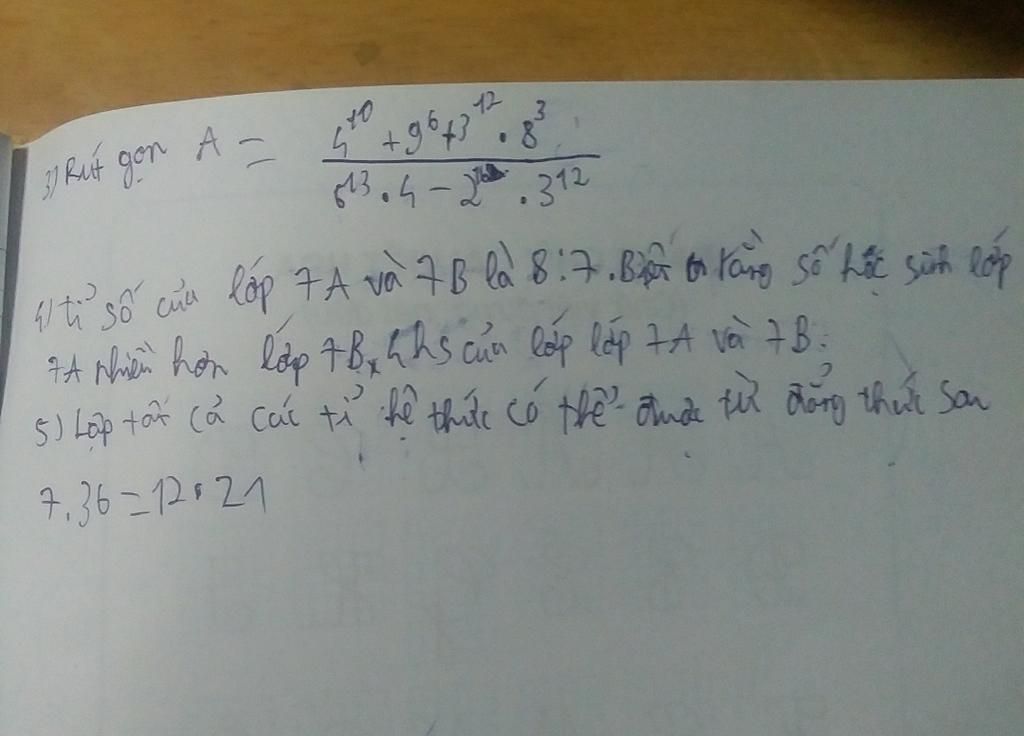 3) Rút gọn A = (4^10 + 9^6 + 3^12 . 8^3) / (6^13 . 4 - 2 . 3^12)
4) tỉ số của lớp 7A và 7B là 8:7. Biết rằng số học sinh lớp
7A nhiều hơn lớp 7B 4 hs của lớp lớp 7A và 7B.
5) Lập tất cả các tỉ hệ thức có thể được từ đẳng thức sau
7.36=12.21